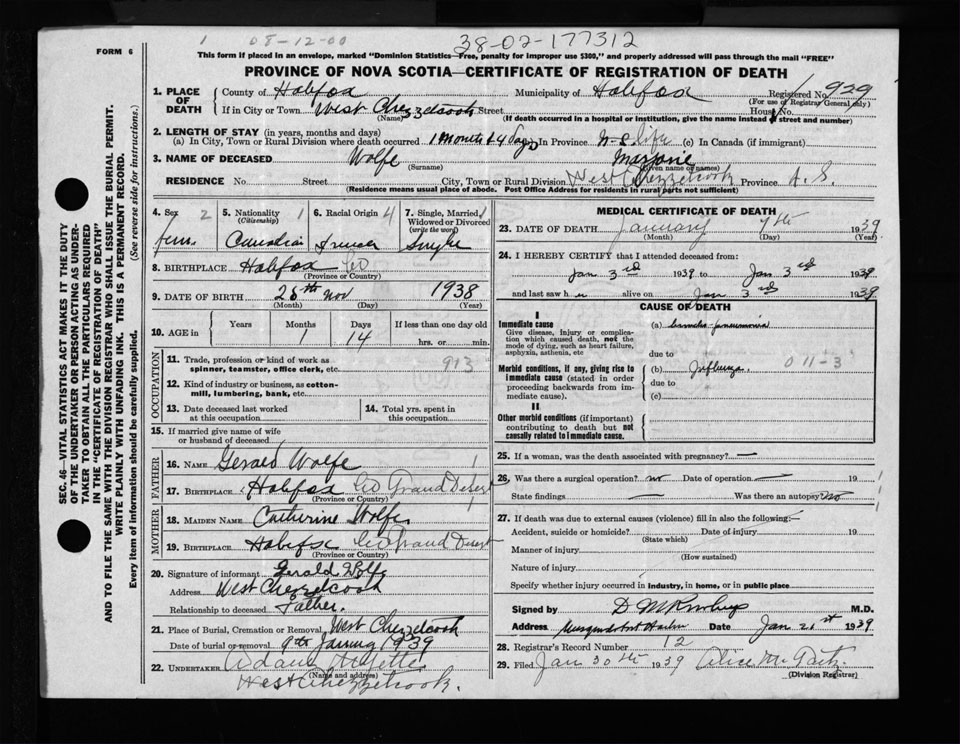 1 08-12-00 38-02-177312
FORM 6
This form if placed in an envelope, marked "Dominion Statistics—Free, penalty for improper use $300," and properly addressed will pass through the mail "FREE"
PROVINCE OF NOVA SCOTIA—CERTIFICATE OF REGISTRATION OF DEATH
1. PLACE OF DEATH
County of Halifax Municipality of Halifax Registered No. 929
(For use of Registrar General only)
If in City or Town West Chezzetcook Street House No.
(Name) (If death occurred in a hospital or institution, give the name instead of street and number)
2. LENGTH OF STAY (in years, months and days)
(a) In City, Town or Rural Division where death occurred 1 Month 14 days (b) In Province N-S. life (c) In Canada (if immigrant)
3. NAME OF DECEASED Wolfe Marjorie
(Surname) (Given name or names)
RESIDENCE No. Street City, Town or Rural Division West Chezzetcook Province N.S.
(Residence means usual place of abode. Post Office Address for residents in rural parts not sufficient)
4. Sex 2 fem.
5. Nationality 1 (Citizenship) Canadian
6. Racial Origin 4
7. Single, Married, Widowed or Divorced (write the word) 1 Single
8. BIRTHPLACE Halifax Co
(Province or Country)
9. DATE OF BIRTH 25th Nov 1938
(Month) (Day) (Year)
10. AGE in Years Months Days If less than one day old
1 14 hrs. or min.
OCCUPATION
11. Trade, profession or kind of work as spinner, teamster, office clerk, etc. 913
12. Kind of industry or business, as cotton-mill, lumbering, bank, etc.
13. Date deceased last worked at this occupation
14. Total yrs. spent in this occupation
15. If married give name of wife or husband of deceased
FATHER
16. NAME Gerald Wolfe 1
17. BIRTHPLACE Halifax Co Grand Desert
(Province or Country) 1
MOTHER
18. MAIDEN NAME Catherine Wolfe
19. BIRTHPLACE Halifax Co Grand Desert
(Province or Country)
20. Signature of informant Gerald Wolfe
Address West Chezzetcook
Relationship to deceased Father.
21. Place of Burial, Cremation or Removal West Chezzetcook
Date of burial or removal 9th January 1939
22. UNDERTAKER
(Name and address)
West Chezzetcook.
MEDICAL CERTIFICATE OF DEATH
23. DATE OF DEATH January 7th 1939
(Month) (Day) (Year)
24. I HEREBY CERTIFY that I attended deceased from:
Jan 3rd 1939 to Jan 3rd 1939
and last saw her alive on Jan 3rd 1939.
CAUSE OF DEATH
I
Immediate cause
Give disease, injury or complication which caused death, not the mode of dying, such as heart failure, asphyxia, asthenia, etc
(a) broncho-pneumonia
due to
Morbid conditions, if any, giving rise to immediate cause (stated in order proceeding backwards from immediate cause).
(b) Influenza. 011-3
due to
(c)
II
Other morbid conditions (if important) contributing to death but not causally related to immediate cause.
25. If a woman, was the death associated with pregnancy? —
26. Was there a surgical operation? no Date of operation — 19 1
State findings — Was there an autopsy? no 1
27. If death was due to external causes (violence) fill in also the following:—
Accident, suicide or homicide? Date of injury 19
(State which)
Manner of injury
(How sustained)
Nature of injury
Specify whether injury occurred in industry, in home, or in public place
Signed by M.D.
Address Musquodoboit Harbor Date Jan 21st 1939
28. Registrar's Record Number 12
29. Filed Jan 30th 1939 Alice M.
(Division Registrar)
SEC. 46—VITAL STATISTICS ACT MAKES IT THE DUTY
OF THE UNDERTAKER OR PERSON ACTING AS UNDER-
TAKER TO OBTAIN ALL THE PARTICULARS REQUIRED
IN THE "CERTIFICATE OF REGISTRATION OF DEATH"
AND TO FILE THE SAME WITH THE DIVISION REGISTRAR WHO SHALL ISSUE THE BURIAL PERMIT.
WRITE PLAINLY WITH UNFADING INK. THIS IS A PERMANENT RECORD.
Every item of information should be carefully supplied. (See reverse side for instructions.)